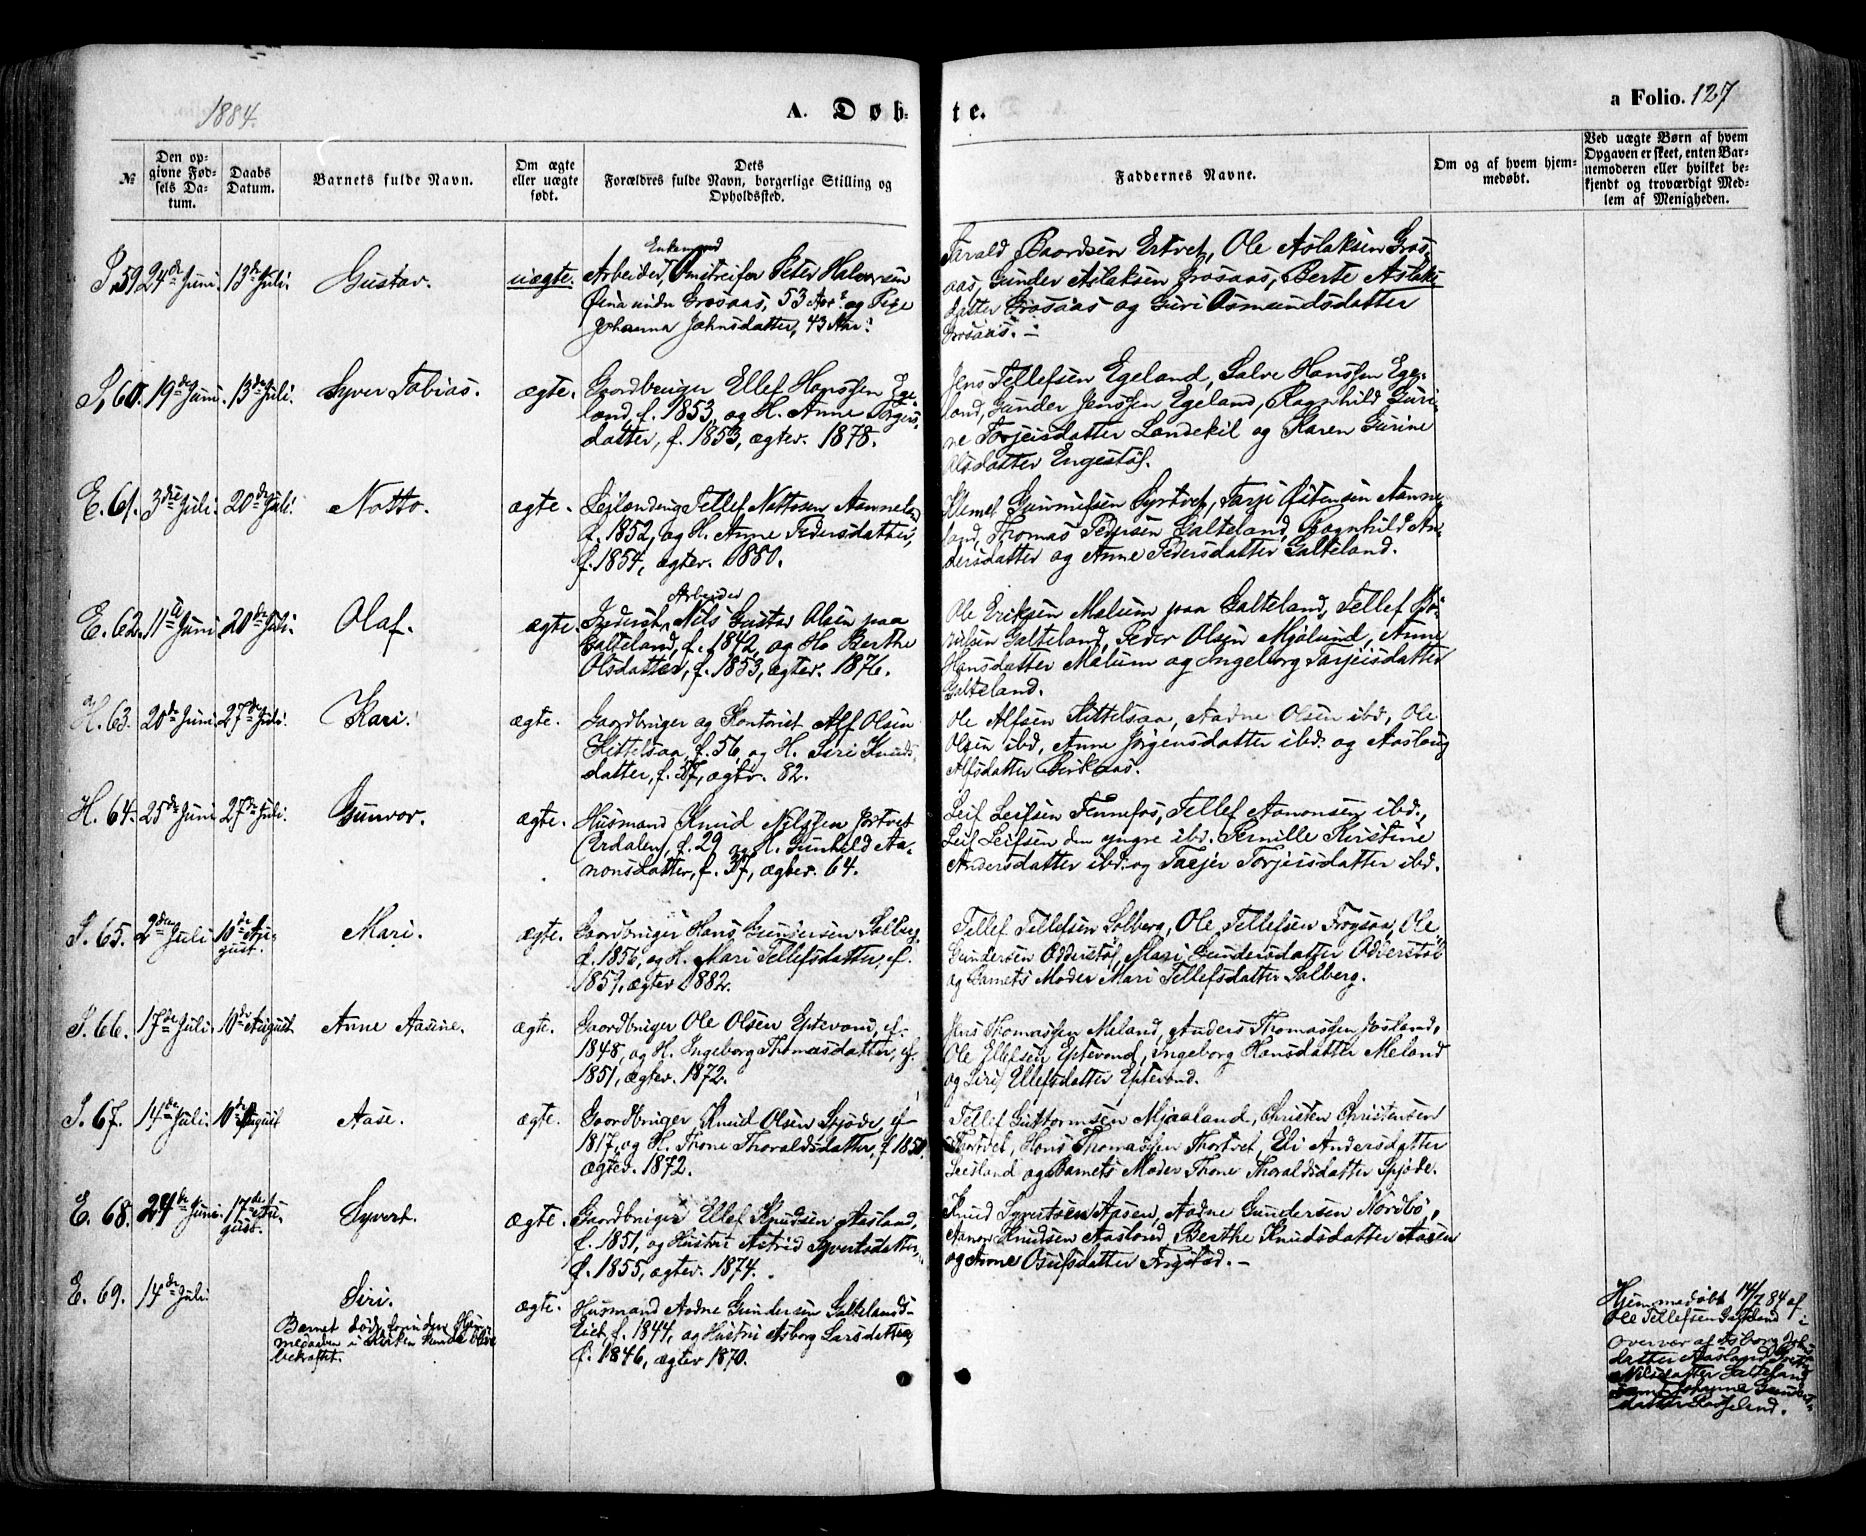 1884.
A. Døb-
te.
a Folio. 127
№
Den op-
givne Fød-
sels Da-
tum.
Daabs
Datum.
Barnets fulde Navn.
Om ægte
eller uægte
født.
Dets
Forældres fulde Navn, borgerlige Stilling og
Opholdssted.
Faddernes Navne.
Om og af hvem hjem-
medøbt.
Ved uægte Børn af hvem
Opgaven er skeet, enten Bar-
nemoderen eller hvilket be-
kjendt og troværdigt Med-
lem af Menigheden.
59 24de Juni. 13de Juli. Gustav. uægte.
Enkemand
Arbeider, Omstreifer Peter Halvorsen
Grosaas, 53 Aar og Pige
Johanna Johnsdatter, 43 Aar.
Tarald Baardsen Ertvet, Ole Aslaksen Gros-
aas, Gunder Aslaksen Grosaas, Berte Aslaks-
datter Grosaas og Guri Osmundsdatter
Grosaas.
60. 19de Juni. 13de Juli. Syver Tobias. ægte.
Gaardbruger Ellef Hanssen Ege-
land, f. 1853, og H. Anne Torgers-
datter, f. 1853, ægtev. 1878.
Jens Tellefsen Egeland, Salve Hanssen Ege-
land, Gunder Jenssen Egeland, Ragnhild Guri-
ne Torjeisdatter Landekil og Karen Gurine
Olsdatter Engestøl.
E. 61. 3die Juli. 20de Juli. Notto. ægte.
Leilænding Tellef Nottosen Aanneland
f. 1852, og H. Anne Pedersdatter,
f. 1854, ægtev. 1880.
Klemet Gunnufsen Syrtvet, Tarje Østensen Aanne-
land, Thomas Pedersen Galteland, Ragnhild An-
dersdatter og Anne Pedersdatter Galteland.
E. 62. 11te Juni 20de Juli. Olaf. ægte.
Arbeider
Nils Gustav Olsen paa
Galteland, f. 1842, og H. Berthe
Olsdatter, f. 1853, ægtev. 1876.
Ole Eriksen Malum paa Galteland, Tellef
Galteland, Peder Olsen Mjølund, Anne
Hansdatter Malum og Ingeborg Tarjeisdatter
Galteland.
H. 63. 20de Juni. 27de Juli. Kari. ægte.
Gaardbruger og Kontorist Alf Olsen
Kittelsaa, f. 56, og H. Siri Knuds-
datter, f. 57, ægtv. 82.
Ole Alfsen Kittelsaa, Aadne Olsen ibd, Ole
Olsen ibd, Anne Jørgensdatter ibd. og Aaslaug
Alfsdatter Birkaas.
H. 64. 25de Juni 27de Juli. Gunvor. ægte.
Husmand Knud Nilssen Jortvet
(Urdalen), f. 29 og H. Gunhild Aa-
nonsdatter, f. 37, ægtev. 64.
Leif Leifsen Fennefos, Tellef Aanonsen ibd.,
Leif Leifsen den yngre ibd. Pernille Kirstine
Andersdatter ibd. og Tarjer Torjeisdatter ibd.
65. 2den Juli 10de Au-
gust. Mari. ægte.
Gaardbruger Hans Gundersen Solberg,
f. 1856, og H. Mari Tellefsdatter, f.
1859, ægtev 1882.
Tellef Tellefsen Solberg, Ole Tellefsen Frøysaa, Ole
Gundersen Odderstøl, Mari Gundersdatter Odderstøl
og Barnets Moder Mari Tellefsdatter Solberg.
66. 17de Juli. 10de August. Anne Aasine. ægte.
Gaardbruger Ole Olsen Eptevand, f.
1848, og H. Ingeborg Thomasdatter, f.
1851, ægtev. 1872.
Jens Thomassen Meland, Anders Thomassen Josland,
Ole Ellefsen Eptevand, Ingeborg Hansdatter Meland
og Siri Ellefsdatter Eptevand.
67. 14de Juli. 10de August Aase. ægte.
Gaardbruger Knud Olsen Spjøde, f.
1817, og H. Thone Thoraldsdatter, f 1850,
ægtev. 1872.
Tellef Guttormsen Mjaaland, Christen Christensen
Thortvet, Hans Thomassen Thortvet, Eli Andersdatter
Leesland og Barnets Moder Thone Thoraldsdatter Spjøde.
E. 68. 24de Juni. 17de Au-
gust. Syvert. ægte.
Gaardbruger Ellef Knudsen Aasland,
f. 1851, og Hustru Astrid Syvertsdatter,
f. 1855, ægtev. 1874.
Knud Syvertsen Aasen, Aadne Gundersen Nordbø,
Aanon Knudsen Aasland, Berthe Knudsdatter Aasen
og Anne Osufsdatter Frigstad. -
E. 69. 14de Juli. Siri. ægte.
Barnet døde, forinden Hjem-
medaaben i Kirken kunde blive
bekræftet.
Husmand Aadne Gundersen Galtelands-
eiet, f. 1844, og Hustru Asborg Larsdatter,
f. 1846, ægtev 1870.
Hjemmedøbt 14/7 84 af
Ole Tellefsen Galteland i
Overvær af Asborg Ols-
datter Aasland,
Nilsdatter Galteland
samt Johanne Gunders-
datter